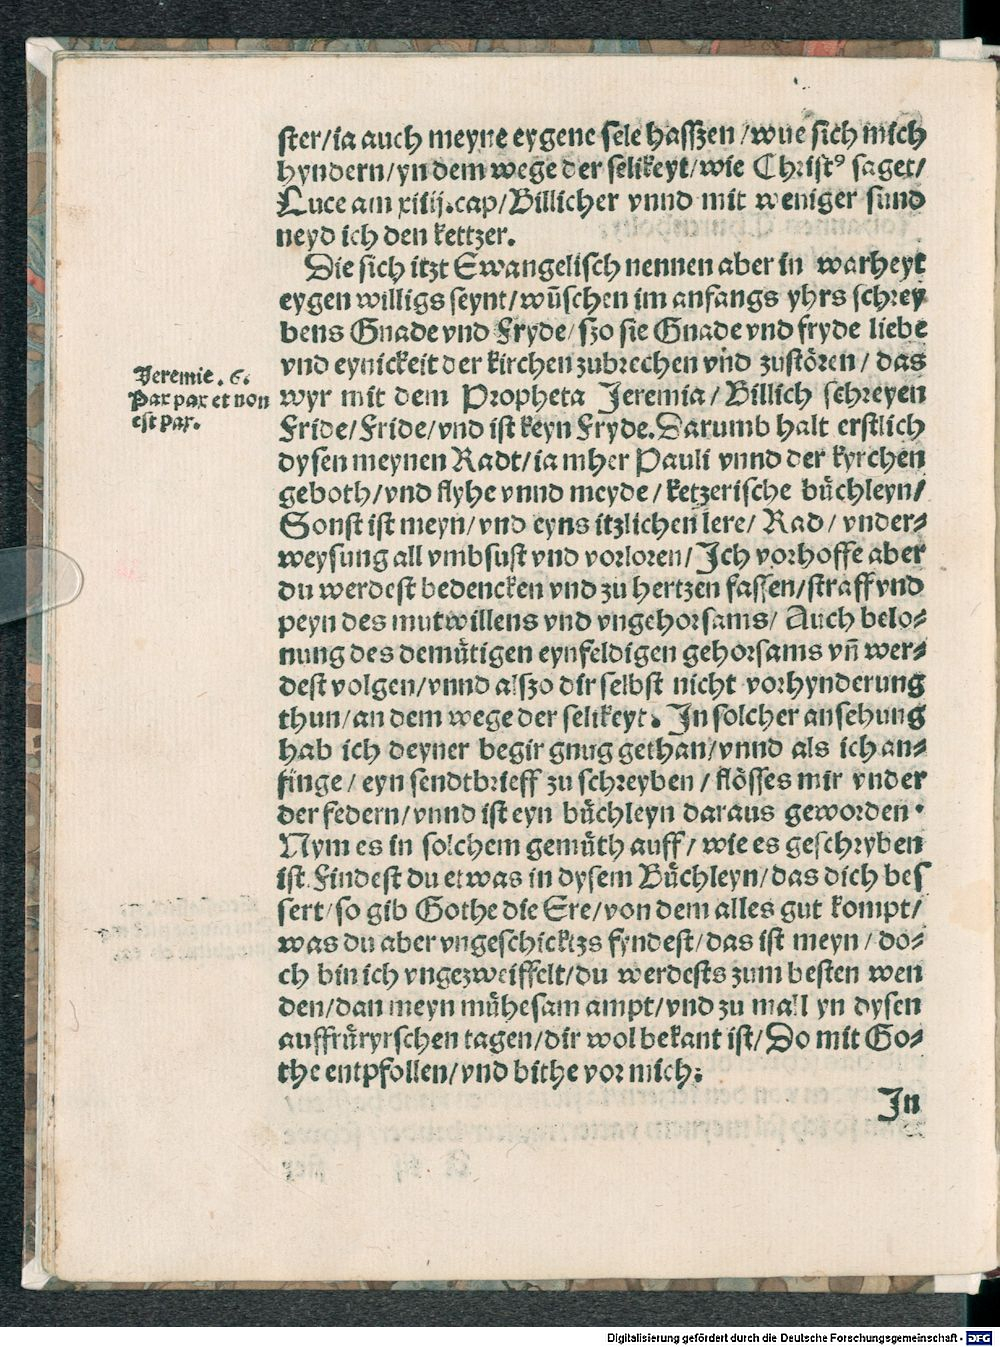 ster/ia auch meyne eygene sele hasszen/wue sich mich
hyndern/yn dem wege der selikeyt/wie Christꝰ saget/
Luce am xiiij.cap/Billicher vnnd mit weniger sund
neyd ich den kettzer.
Die sich itzt Ewangelisch nennen aber in warheyt
eygen willigs seynt/wu̅schen im anfangs yhrs schrey
bens Gnade vnd Fryde/szo sie Gnade vnd fryde liebe
vnd eynickeit der kirchen zubrechen vnd zustören/das
wyr mit dem Propheta Jeremia/Billich schreyen
Fride/Fride/vnd ist keyn Fryde.Darumb halt erstlich
dysen meynen Radt/ia mher Pauli vnnd der kyrchen
geboth/vnd flyhe vnnd meyde/ketzerische bu̎chleyn/
Sonst ist meyn/vnd eyns itzlichen lere/Rad/vnder⸗
weysung all vmbsust vnd vorloren/Ich vorhoffe aber
du werdest bedencken vnd zu hertzen fassen/straff vnd
peyn des mutwillens vnd vngehorsams/Auch belo⸗
nung des demu̎tigen eynfeldigen gehorsams vn̅ wer⸗
dest volgen/vnnd alszo dir selbst nicht vorhynderung
thun/an dem wege der selikeyt. In solcher ansehung
hab ich deyner begir gnug gethan/vnnd als ich an⸗
finge/eyn sendtbrieff zu schreyben/flösses mir vnder
der federn/vnnd ist eyn bu̎chleyn daraus geworden.
Nym es in solchem gemu̎th auff/wie es geschryben
ist.Findest du etwas in dysem Bu̎chleyn/das dich bes
sert/so gib Gothe die Ere/von dem alles gut kompt/
was du aber vngeschicktzs fyndest/das ist meyn/do⸗
ch bin ich vngezweiffelt/du werdests zum besten wen
den/dan meyn mu̎hesam ampt/vnd zu mall yn dysen
auffru̎ryrschen tagen/dir wol bekant ist/Do mit Go⸗
the entpfollen/vnd bithe vor mich:
In
Jeremie.6.
Pax pax et non
est pax.
Digitalisierung gefördert durch die Deutsche Forschungsgemeinschaft - DFG